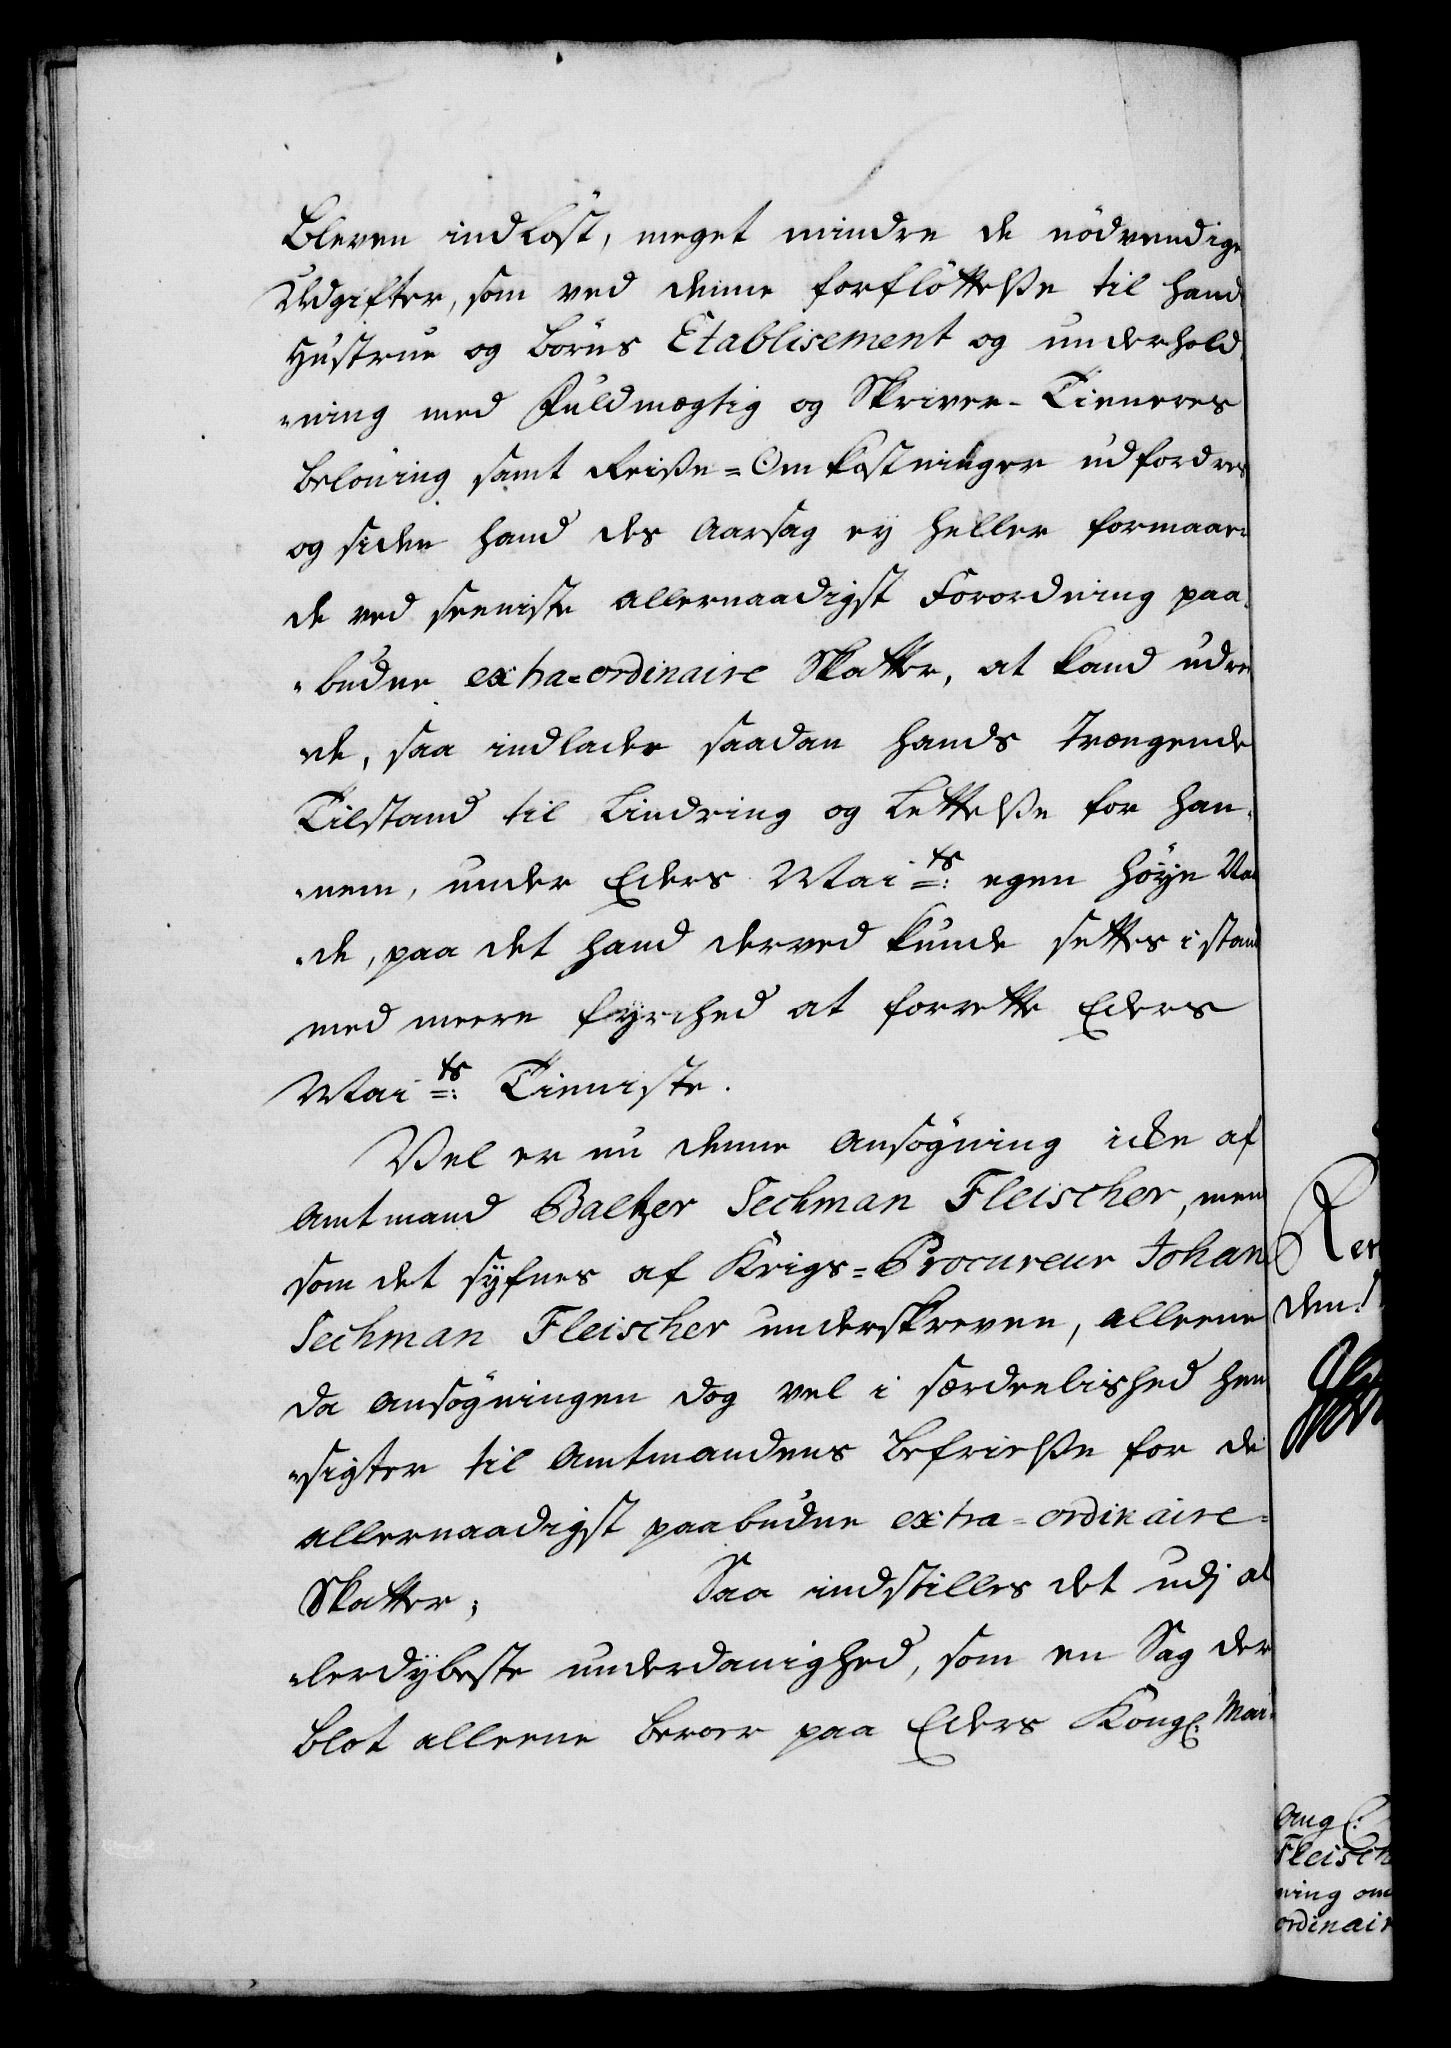 bleven indløst, meget mindre de nødvendige
Udgifter, som ved denne forflöttelse til hand
Hustrue og børns Etablisement og underhold
-ning med Fuldmægtig og Skriver-Tieneres
beloning samt Reise=Omkostninger udfordres
og siden hand des Aarsag ey heller formaar
de ved seeniste allernaadigst Forordning paa
-budne extra-ordinaire Skatter, at kand udre
-de, saa indlades saadan hands trængende
Tilstand til Lindring og Lettelse for han
-nem, under Eders Mai ts: egen høye Naa
-de, paa det hand derved kunde settes i stand
med meere fyrighed at forrette Eders
Mai ts: Tieniste.
Vel er nu denne ansøgning icke af
Amtmand Baltzer Sechman Fleischer, men
som det syfnes af Krigs=Procureur Johan
Sechman Fleischer underskreven, alleene
da ansøgningen dog vel i særdeelished hen
-sigter til Amtmandens befrielse for de
allernaadigst paabudne extra-ordinaire-
Skatter; Saa indstilles det udj al
-lerdybeste underdanighed, som en Sag der
blot alleene beroer paa Eders Kongl: Mai-
Ren
dend
Ang:
Fleisch
ning om
ordinair